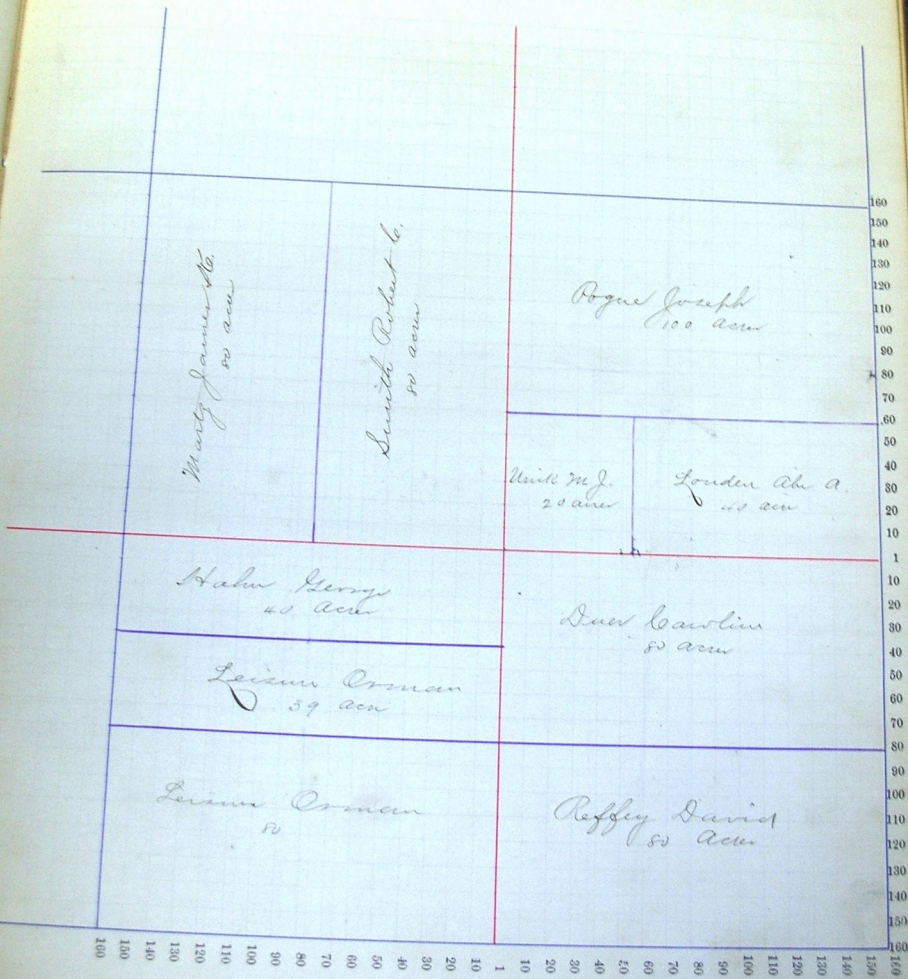 Martz James W.
80 acres
Smith Robert C.
80 acres
Pogue Joseph
100 acres
M. J.
20 acres
Louden Abr A.
40 acres
Hahn George
40 Acres
Duer Caroline
80 acres
Leisure Orman
39 Acres
Leisure Orman
80
Reffey David
80 Acres
160
150
140
130
120
110
100
90
80
70
60
50
40
30
20
10
1
10
20
30
40
50
60
70
80
90
100
110
120
130
140
150
160
160 150 140 130 120 110 100 90 80 70 60 50 40 30 20 10 1 10 20 30 40 50 60 70 80 90 100 110 120 130 140 150 160